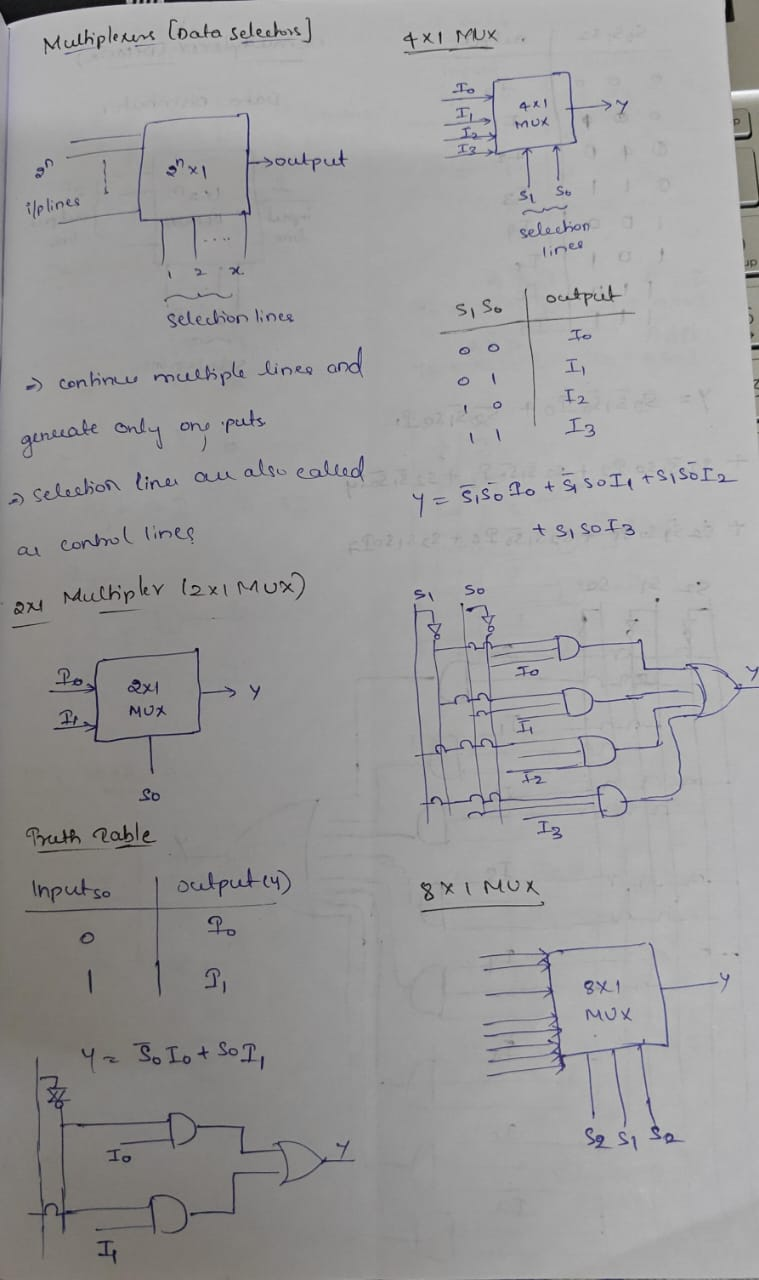 Multiplexers [Data selectors]
2ⁿ
i/p lines
2ⁿ x 1
output
1 2 .... x
selection lines
multiple lines and
generate only one puts
=) selection lines are also called
as control lines
2x1 Multipler (2x1 MUX)
I₀
I₁
2x1
MUX
Y
S₀
Truth Table
Input S₀ output (Y)
0 I₀
1 I₁
Y = S̅₀ I₀ + S₀ I₁
I₀
Y
I₁
4x1 MUX
I₀
I₁
I₂
I₃
4x1
MUX
Y
S₁ S₀
selection
lines
S₁ S₀ output
0 0 I₀
0 1 I₁
1 0 I₂
1 1 I₃
Y = S̅₁ S̅₀ I₀ + S̅₁ S₀ I₁ + S₁ S̅₀ I₂
+ S₁ S₀ I₃
S₁ S₀
I₀
Y
I₁
I₂
I₃
8 x 1 MUX
8x1
MUX
Y
S₂ S₁